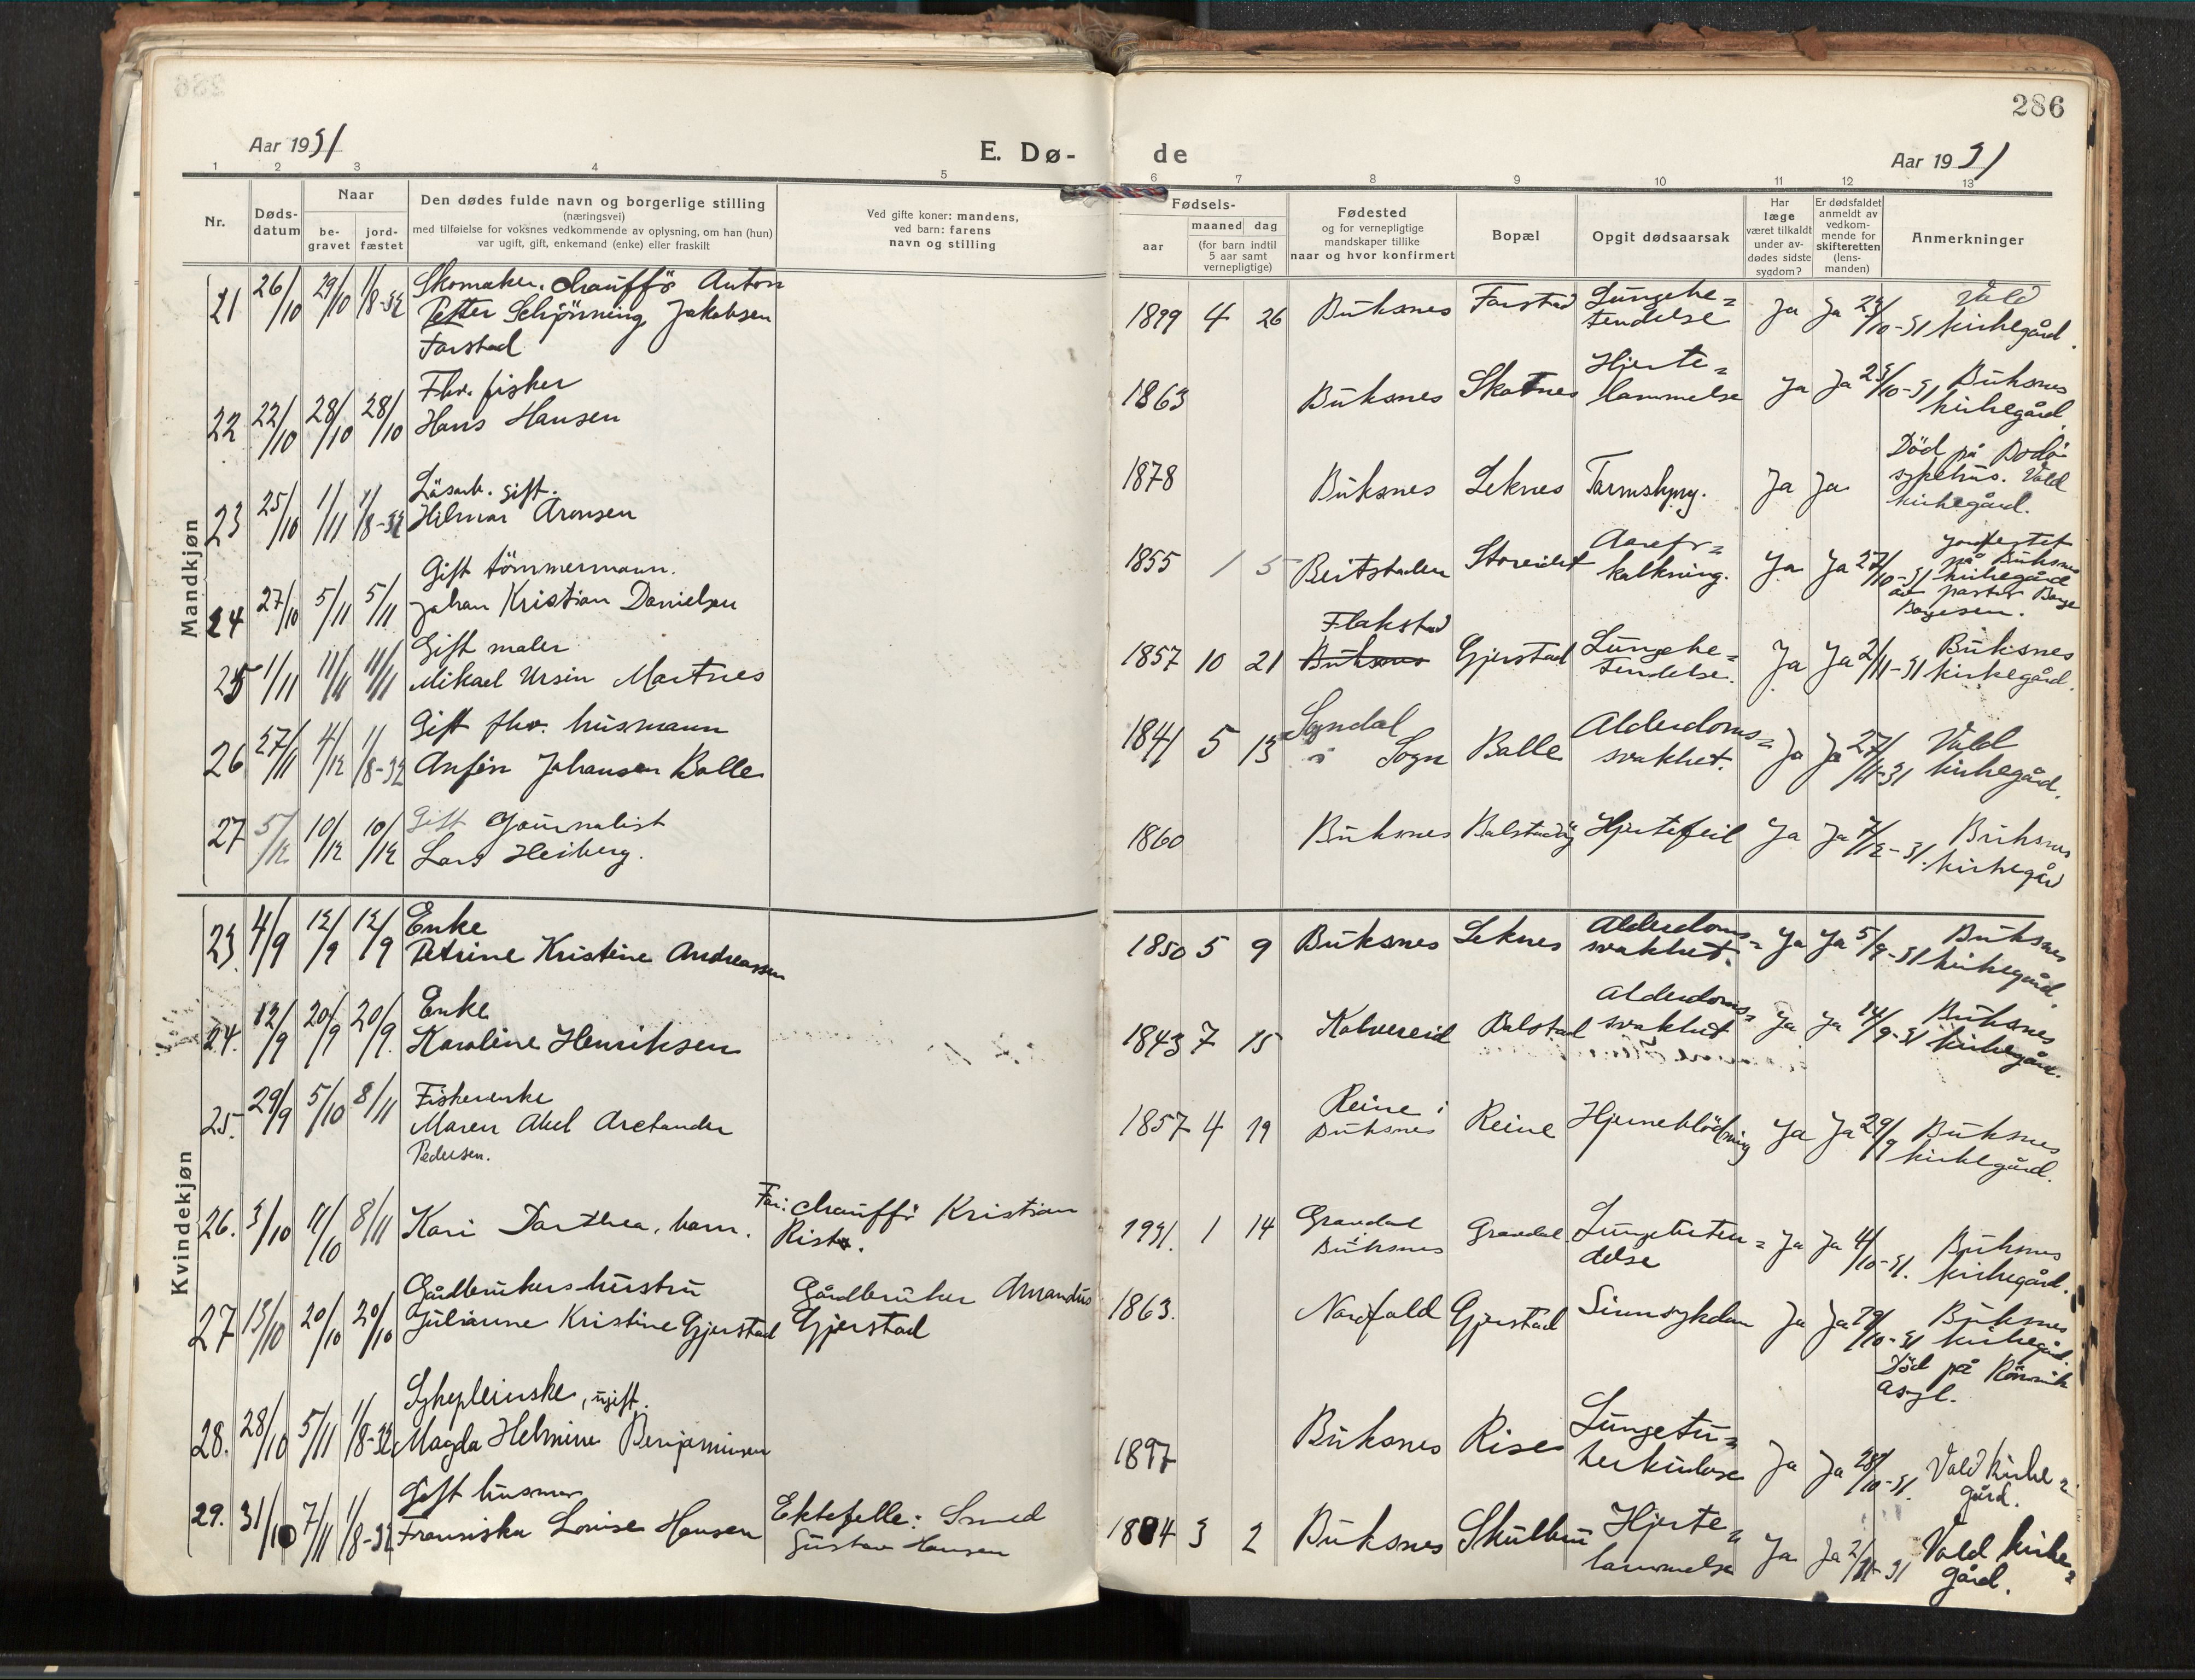 286
Aar 1931
E. Dø-
de
Aar 1931
1 2 3 4 5 6 7 8 9 10 11 12 13
Nr.
Døds-
datum
Naar
be-
gravet
jord-
fæstet
Den dødes fulde navn og borgerlige stilling
(næringsvei)
med tilføielse for voksnes vedkommende av oplysning, om han (hun)
var ugift, gift, enkemand (enke) eller fraskilt
Ved gifte koner: mandens,
ved barn: farens
navn og stilling
Fødsels-
aar
maaned dag
(for barn indtil
5 aar samt
vernepligtige)
Fødested
og for vernepligtige
mandskaper tillike
naar og hvor konfirmert
Bopæl
Opgit dødsaarsak
Har
læge
været tilkaldt
under av-
dødes sidste
sygdom?
Er dødsfaldet
anmeldt av
vedkom-
mende for
skifteretten
(lens-
manden)
Anmerkninger
Mandkjøn
21 26/10 29/10 1/8-32 Skomaker, chauffør Anton
Petter Schjönning Jakobsen
Farstad
1899 4 26 Buksnes Farstad Lungebe=
tendelse Ja Ja 29/10-31 Vald
kirkegård.
22 22/10 28/10 28/10 Fhv. fisker
Hans Hansen
1863 Buksnes Skotnes Hjerte=
lammelse Ja Ja 23/10-31 Buksnes
kirkegård.
23 25/10 1/11 1/8-32 Lösarb. gift.
Hilmar Aronsen
1878 Buksnes Leknes Tarmslyng. Ja Ja Död på Bodö
sykehus. Vald
kirkegård.
24 27/10 5/11 5/11 Gift tömmermann.
Johan Kristian Danielsen
1855 1 5 Beitstaden Storeidet Aarefor=
kalkning. Ja Ja 27/10-31 jordfestet
på Buksnes
kirkegård
av pastor Borge
Borgesen.
25 1/11 11/11 11/11 Gift maler
Mikael Ursin Mortnes
1857 10 21 Flakstad
Buksnes Gjerstad Lungebe=
tendelse. Ja Ja 2/11-31 Buksnes
kirkegård.
26 27/11 4/12 1/8-32 Gift fhv. husmann
Anfin Johansen Balle
1841 5 13 Sogndal
i Sogn Balle Alderdoms=
svakhet. Ja Ja 27/11-31 Vald
kirkegård.
27 5/12 10/12 10/12 Gift Journalist
Lars Heiberg.
1860 Buksnes Balstadöy Hjertefeil Ja Ja 7/12-31. Buksnes
kirkegård
Kvindekjøn
23. 4/9 12/9 12/9 Enke
Petrine Kristine Andreassen
1850 5 9 Buksnes Leknes Alderdoms=
svakhet. Ja Ja 5/9-31 Buksnes
kirkegård.
24. 12/9 20/9 20/9. Enke
Karoline Henriksen
1843 7 15 Kolvereid Balstad Alderdoms=
svakhet Ja Ja 14/9-31 Buksnes
kirkegård.
25. 29/9 5/10 8/11 Fiskerenke
Maren Abel Arctander
Pedersen.
1857 4 19 Reine i
Buksnes Reine Hjerneblödning Ja Ja 29/9 Buksnes
kirkegård.
26. 3/10 11/10 8/11 Kari Dorthea, barn.
Far: chauffør Kristian
Rist.
1931. 1 14 Gravdal
Buksnes Gravdal Lungebeten=
delse Ja Ja 4/10-31. Buksnes
kirkegård.
27 13/10 20/10 20/10 Gårdbrukers hustru
Julianne Kristine Gjerstad
Gårdbruker Amandus
Gjerstad
1863. Nordfold Gjerstad Sinnsykdom Ja Ja 19/10-31 Buksnes
kirkegård.
Död på Rönvik
asyl.
28. 28/10 5/11 1/8-32 Sykepleierske, ugift.
Magda Helmine Benjaminsen
1897 Buksnes Rise Lungetu=
berkulose Ja Ja 28/10-31. Vald kirke=
gård.
29. 31/10 7/11 1/8-32 Gift husmor
Fransiska Lovise Hansen
Ektefelle: Smed
Gustav Hansen
1884 3 2 Buksnes Skulbru Hjerte=
lammelse Ja Ja 2/11-31 Vald kirke=
gård.